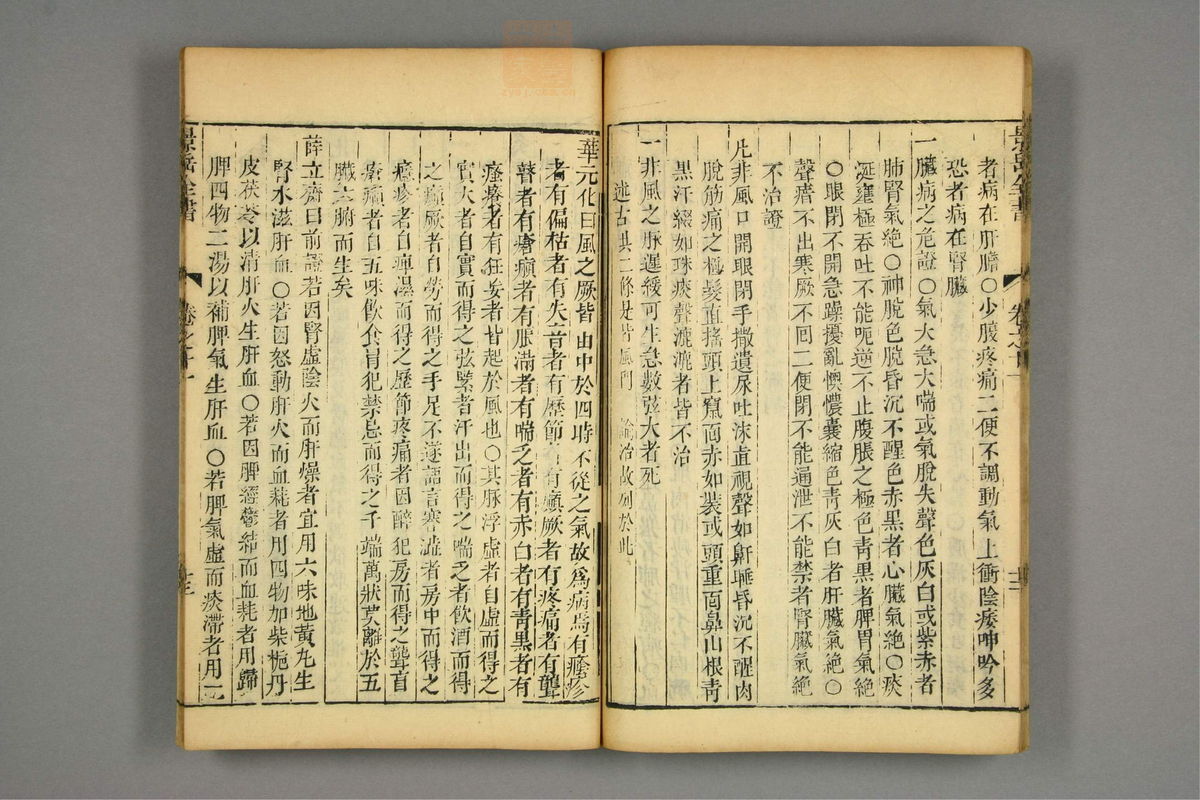 者病在肝膽○少腹疼痛二便不調動氣上衝陰痿呻吟多
恐者病在腎臟
一臟病之危證○氣大急大喘或氣脫失聲色灰白或紫赤者
肺腎氣絶○神脫色脫昏沉不醒色赤黑者心臟氣絶○痰
涎壅極吞吐不能呃逆不止腹脹之極色青黑者脾胃氣絶
○眼閉不開急躁擾亂懊憹囊縮色青灰白者肝臟氣絶○
聲瘖不出寒厥不回二便閉不能通泄不能禁者腎臟氣絶
不治證
凡非風口開眼閉手撒遺尿吐沫直視聲如鼾睡昏沉不醒肉
脫筋痛之極髮直搖頭上竄面赤如裝或頭重面鼻山根青
黑汗綴如珠痰聲漉漉者皆不治
一非風之脉遲緩可生急數弦大者死
述古共二條是皆風門 論治故列於此
景岳全書
卷之十一
十二
華元化曰風之厥皆由中於四時不從之氣故爲病焉有癮疹
者有偏枯者有失音者有歷節者有癲厥者有疼痛者有聾
瞽者有瘡癩者有脹滿者有喘乏者有赤白者有青黑者有
瘙癢者有狂妄者皆起於風也○其脉浮虛者自虛而得之
實大者自實而得之弦緊者汗出而得之喘乏者飲酒而得
之癲厥者自勞而得之手足不遂語言蹇澁者房中而得之
癮疹者自痺濕而得之歷節疼痛者因醉犯房而得之聾盲
瘡癩者自五味飲食冐犯禁忌而得之千端萬狀莫離於五
臟六腑而生矣
薛立齋曰前證若因腎虛陰火而肝燥者宜用六味地黃丸生
腎水滋肝血○若因怒動肝火而血耗者用四物加柴梔丹
皮茯苓以清肝火生肝血○若因脾經鬱結而血耗者用歸
脾四物二湯以補脾氣生肝血○若脾氣虛而痰滯者用二
景岳全書
卷之十一
十三